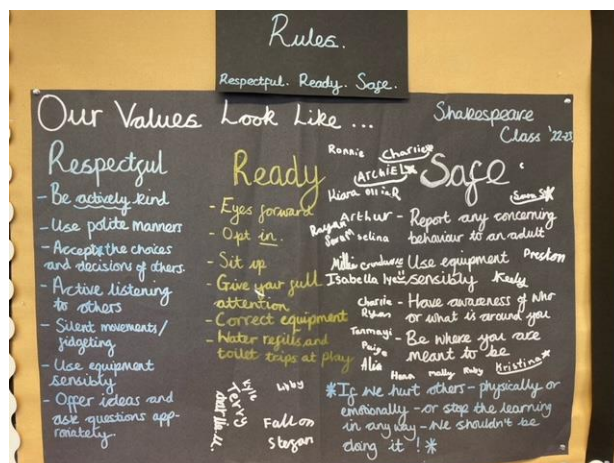 Rules.
Respectful. Ready. Safe.
Our Values Look Like ...
Shakespeare
Class '22-23
Respectful
- Be actively kind
- Use polite manners
- Accept the choices
and decisions of others.
- Active listening
to others
- Silent movements/
fidgeting
- Use equipment
sensibly
- Offer ideas and
ask questions app-
ropriately..
Ready
- Eyes forward
- Opt in.
- Sit up
- Give your full
attention
- Correct equipment
- Water refills and
toilet trips at play
Safe
- Report any concerning
behaviour to an adult
- Use equipment
sensibly
- Have awareness of who
or what is around you
- Be where you are
meant to be
*If we hurt others - physically or
emotionally - or stop the learning
in any way - we shouldn't be
doing it! *
Ronnie
Charlie
Archie L
Kiara Ollie R
Sam S
Arthur
Rayan
Sarah selina
Millie
Preston
Isabella
Keely
Charlie
Ryan
Tanmayi
Paige
Alia
Hana Molly Ruby Kristina
Kyle
Libby
Terry
Fallon
Stefan